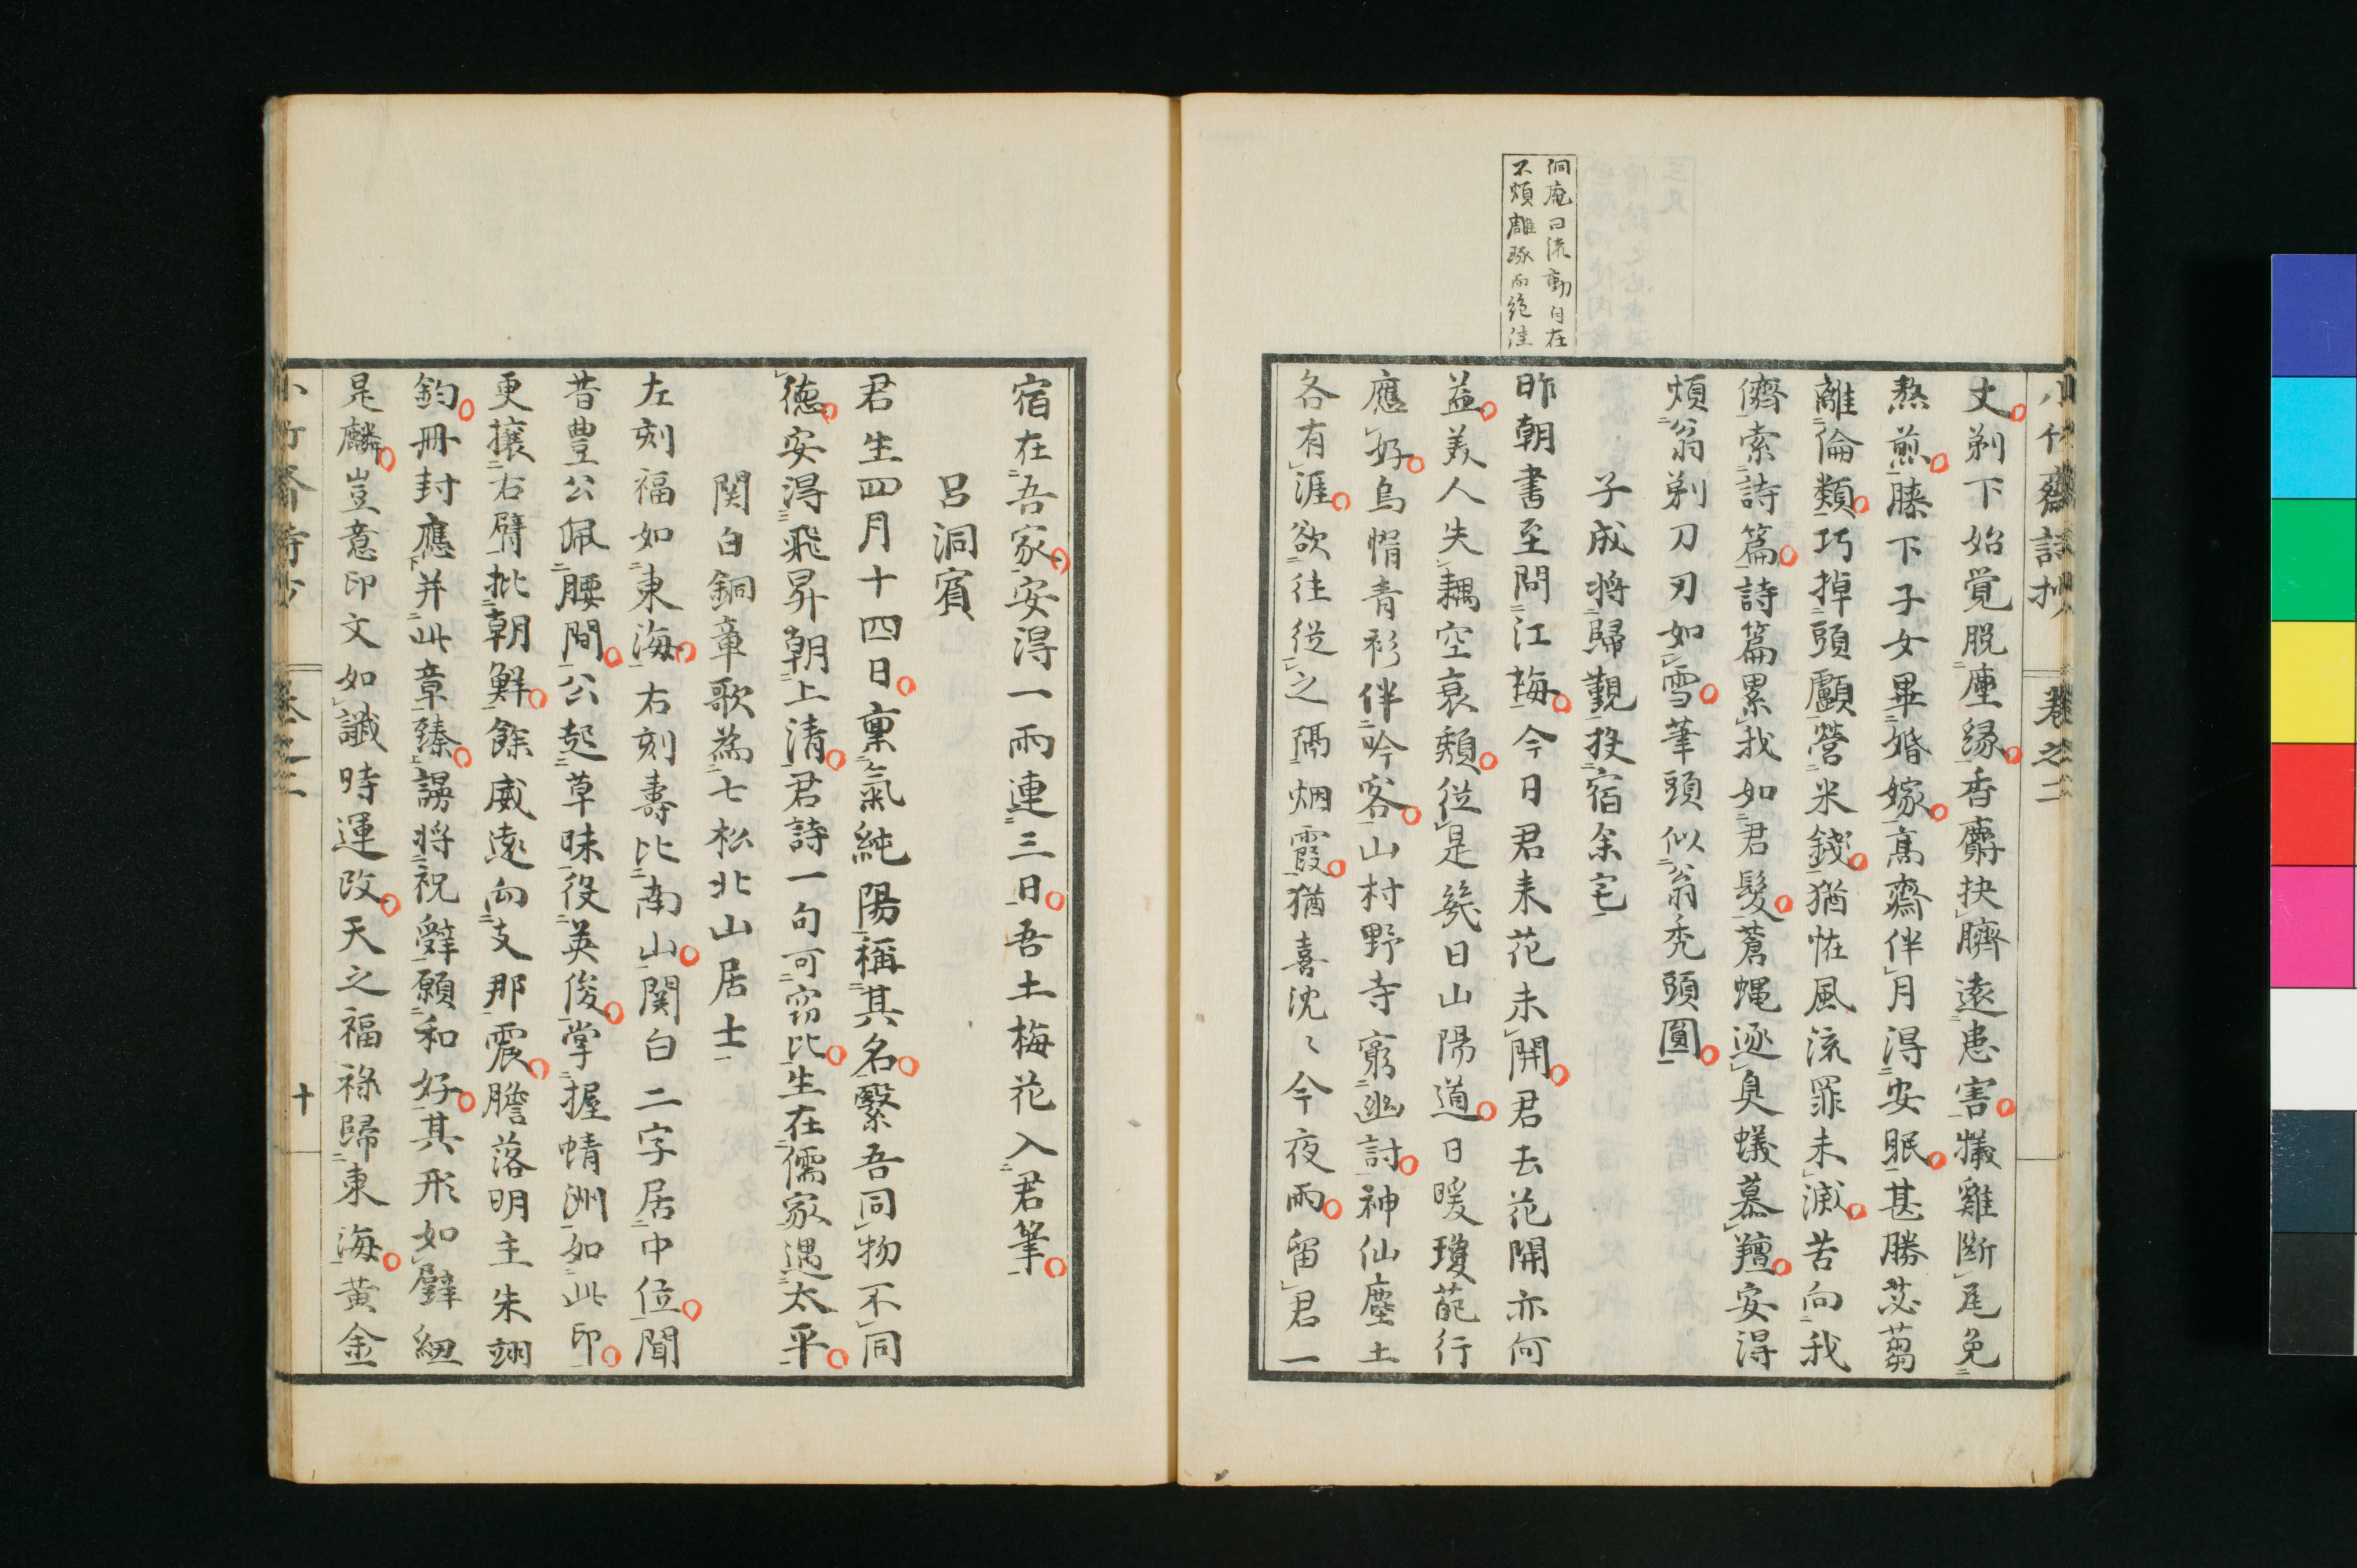 小竹齋詩抄 卷之二
丈剃下始覚脱塵緣香麝抉臍遠患害犧雞断尾免
熬煎膝下子女畢婚嫁高齋伴月得安眠甚勝苾蒭
離倫類巧掉頭顱營米錢猶恠風流罪未滅苦向我
儕索詩篇詩篇累我如君髮蒼蝿逐臭蟻慕羶安得
煩翁剃刀刃如雪筆頭似翁禿頭圓
子成将歸覲投宿余宅
侗庵曰流動自在
不煩雕琢而絶佳
昨朝書至問江梅今日君来花未開君去花開亦何
益美人失耦空哀頽從是幾日山陽道日暖瓊葩行
應好烏㡌青衫伴吟客山村野寺窮幽討神仙塵土
各有涯欲往從之隔烟霞猶喜沈〻今夜雨留君一
宿在吾家安得一雨連三日吾土梅花入君筆
呂洞賓
君生四月十四日稟氣純陽稱其名繄吾同物不同
徳安得飛昇朝上清君詩一句可竊比生在儒家遇太平
関白銅章歌為七松北山居士
左刻福如東海右刻壽比南山関白二字居中位聞
昔豊公佩腰間公起草昧役英俊掌握蜻洲如此印
更攘右臂批朝鮮餘威遠向支那震膽落明主朱翊
鈞冊封應并此章臻謗将祝辭願和好其形如璧紐
是麟豈意印文如讖時運改天之福祿歸東海黄金
小竹齋詩抄 卷之二 十